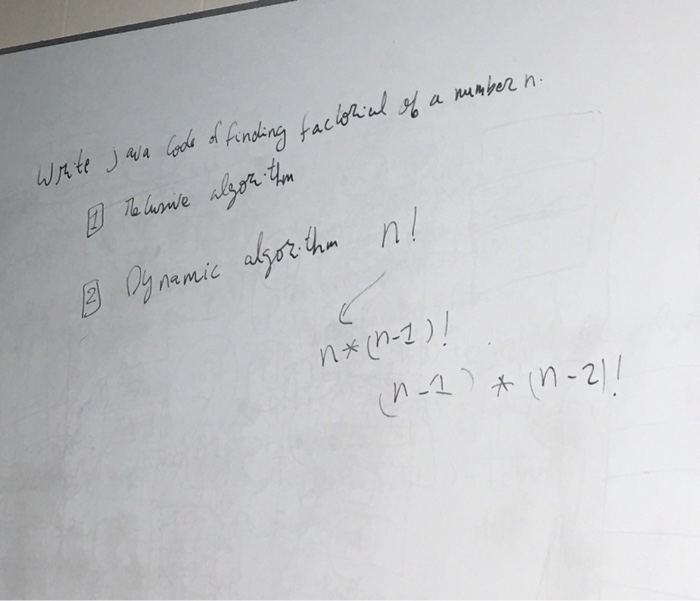 Write java Code of finding factorial of a number n.
1 Recursive algorithm
2 Dynamic algorithm n!
n*(n-1)!
(n-1) * (n-2)!